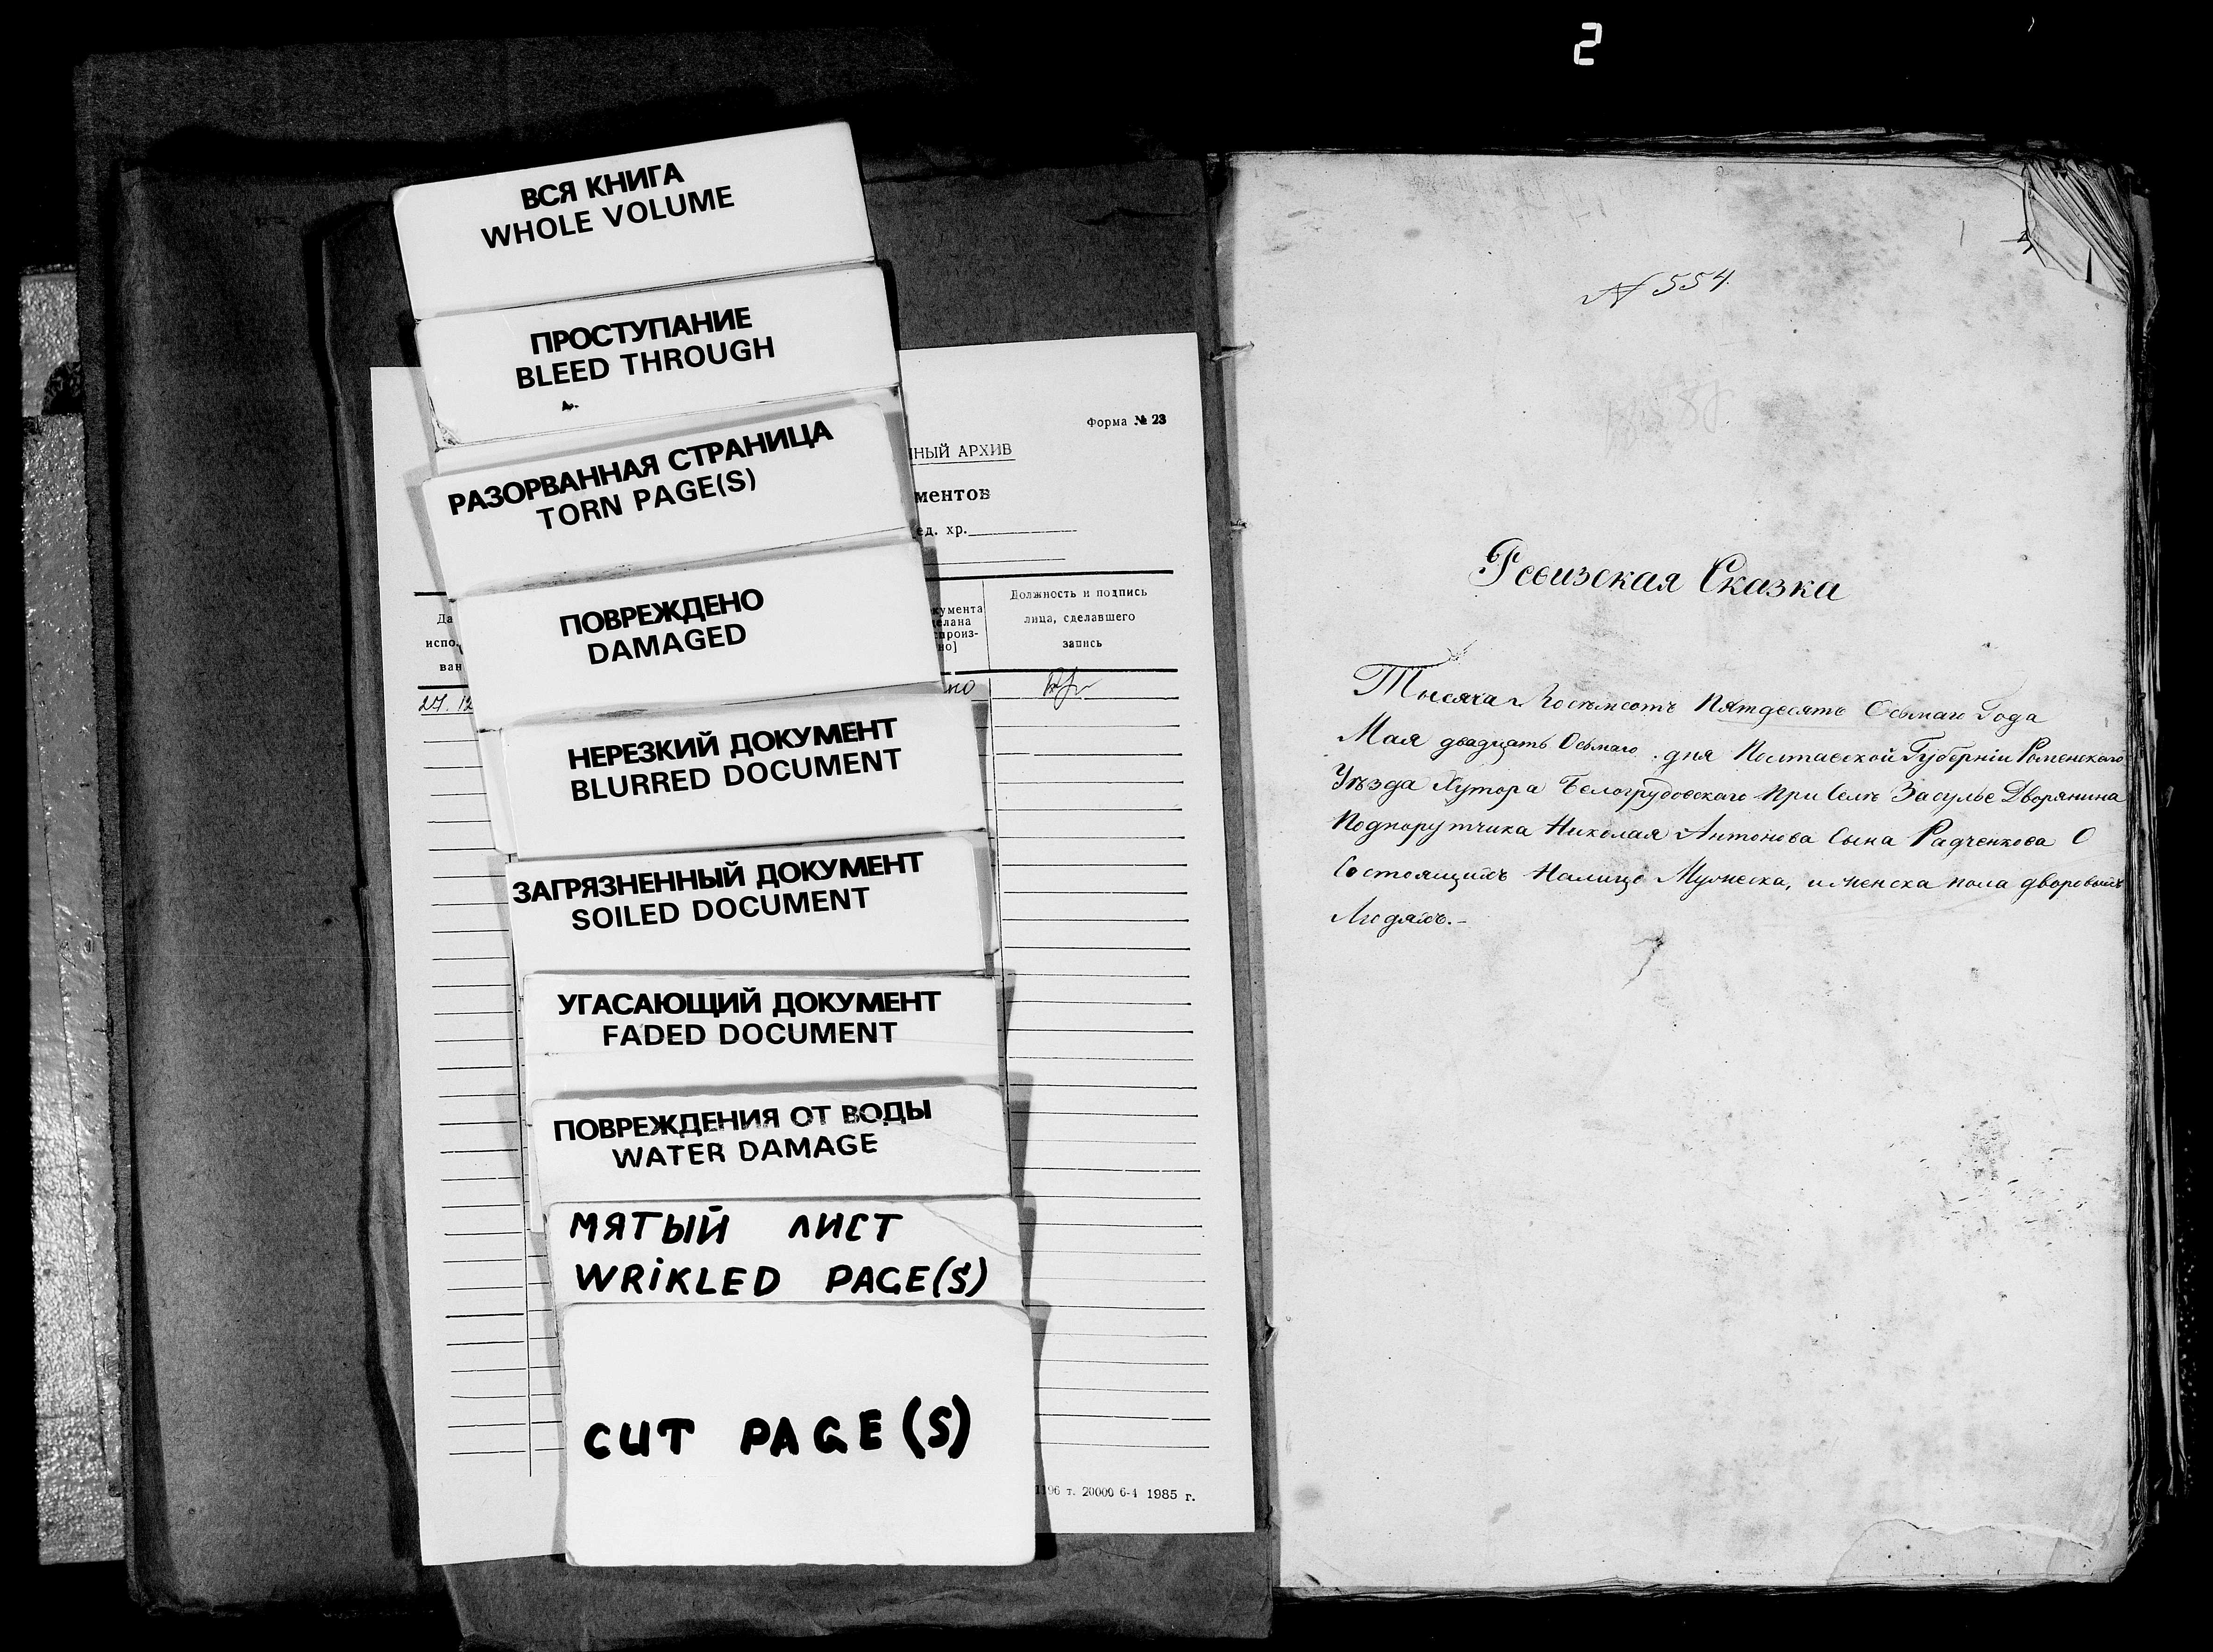 2
ВСЯ КНИГА
WHOLE VOLUME
ПРОСТУПАНИЕ
BLEED THROUGH
РАЗОРВАННАЯ СТРАНИЦА
TORN PAGE(S)
ПОВРЕЖДЕНО
DAMAGED
НЕРЕЗКИЙ ДОКУМЕНТ
BLURRED DOCUMENT
ЗАГРЯЗНЕННЫЙ ДОКУМЕНТ
SOILED DOCUMENT
УГАСАЮЩИЙ ДОКУМЕНТ
FADED DOCUMENT
ПОВРЕЖДЕНИЯ ОТ ВОДЫ
WATER DAMAGE
МЯТЫЙ ЛИСТ
WRIKLED PAGE(S)
CUT PAGE(S)
Форма № 23
НЫЙ АРХИВ
ментов
ед. хр.
Должность и подпись
лица, сделавшего
запись
Да
испо
ван
кумента
делана
произ-
но]
27. 12
но
1196 т. 20000 6-4 1985 г.
N 554.
Ревизская Сказка
Тысяча Восемсотъ Пятдесятъ Осьмаго Года
Мая двадцать Осьмаго дня Полтавской Губерніи Роменского
Уѣзда Хутора Белогрудовскаго при Селѣ Засулье Дворянина
Подпорутчика Николая Антонова Сына Радченкова О
Состоящихъ Налицо Мужеска, и женска пола дворовыхъ
Людяхъ.-